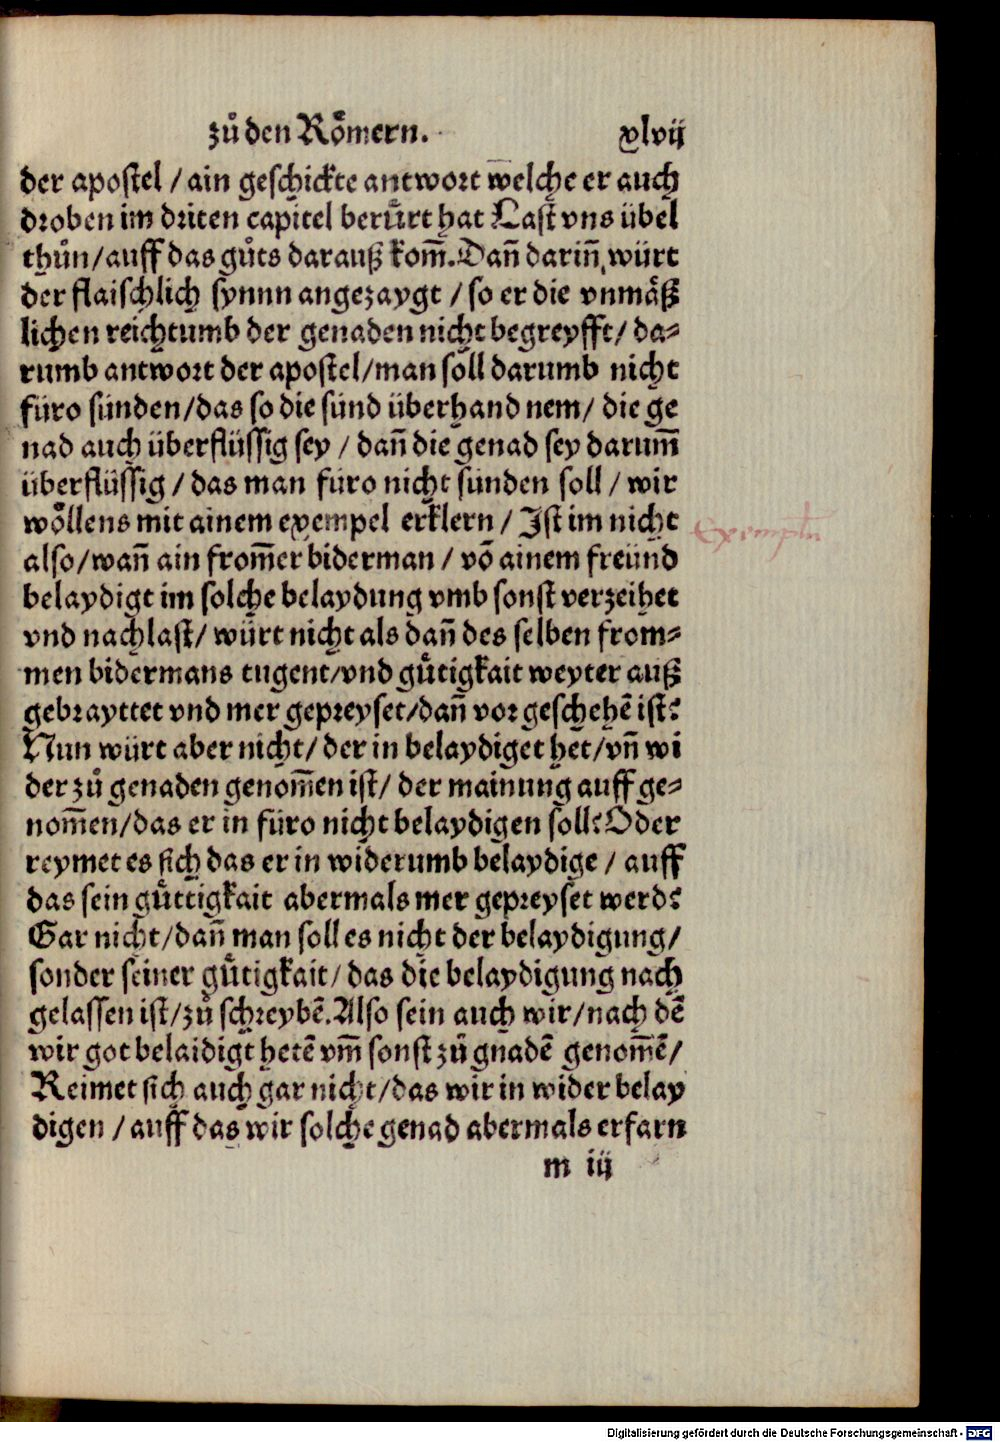 zů den Roͤmern. xlvij
der apostel / ain geschickte antwort welche er auch
droben im driten capitel beruͤrt hat Last vns übel
thůn / auff das gůts darauß kom̄. Dan̄ darin̄ würt
der flaischlich synnn angezaygt / so er die vnmaͤß
lichen reichtumb der genaden nicht begreyfft / da-
rumb antwort der apostel / man soll darumb nicht
füro sünden / das so die sünd überhand nem / die ge
nad auch überflüssig sey / dan̄ die genad sey darum̄
überflüssig / das man füro nicht sünden soll / wir
woͤllens mit ainem exempel erklern / Ist im nicht
Exemplum
also / wan̄ ain from̄er biderman / vō ainem freünd
belaydigt im solche belaydung vmb sonst verzeihet
vnd nachlast / würt nicht als dan̄ des selben from-
men bidermans tugent / vnd guͤtigkait weyter auß
gebrayttet vnd mer gepreyset / dan̄ vor geschehē ist?
Nun würt aber nicht / der in belaydiget het / vn̄ wi
der zů genaden genom̄en ist / der mainung auff ge-
nom̄en / das er in füro nicht belaydigen soll? Oder
reymet es sich das er in widerumb belaydige / auff
das sein guͤttigkait abermals mer gepreyset werd?
Gar nicht / dan̄ man soll es nicht der belaydigung /
sonder seiner guͤtigkait / das die belaydigung nach
gelassen ist / zů schreybē. Also sein auch wir / nach dē
wir got belaidigt hetē vm̄ sonst zů gnadē genom̄ē /
Reimet sich auch gar nicht / das wir in wider belay
digen / auff das wir solche genad abermals erfarn
m iij
Digitalisierung gefördert durch die Deutsche Forschungsgemeinschaft - DFG